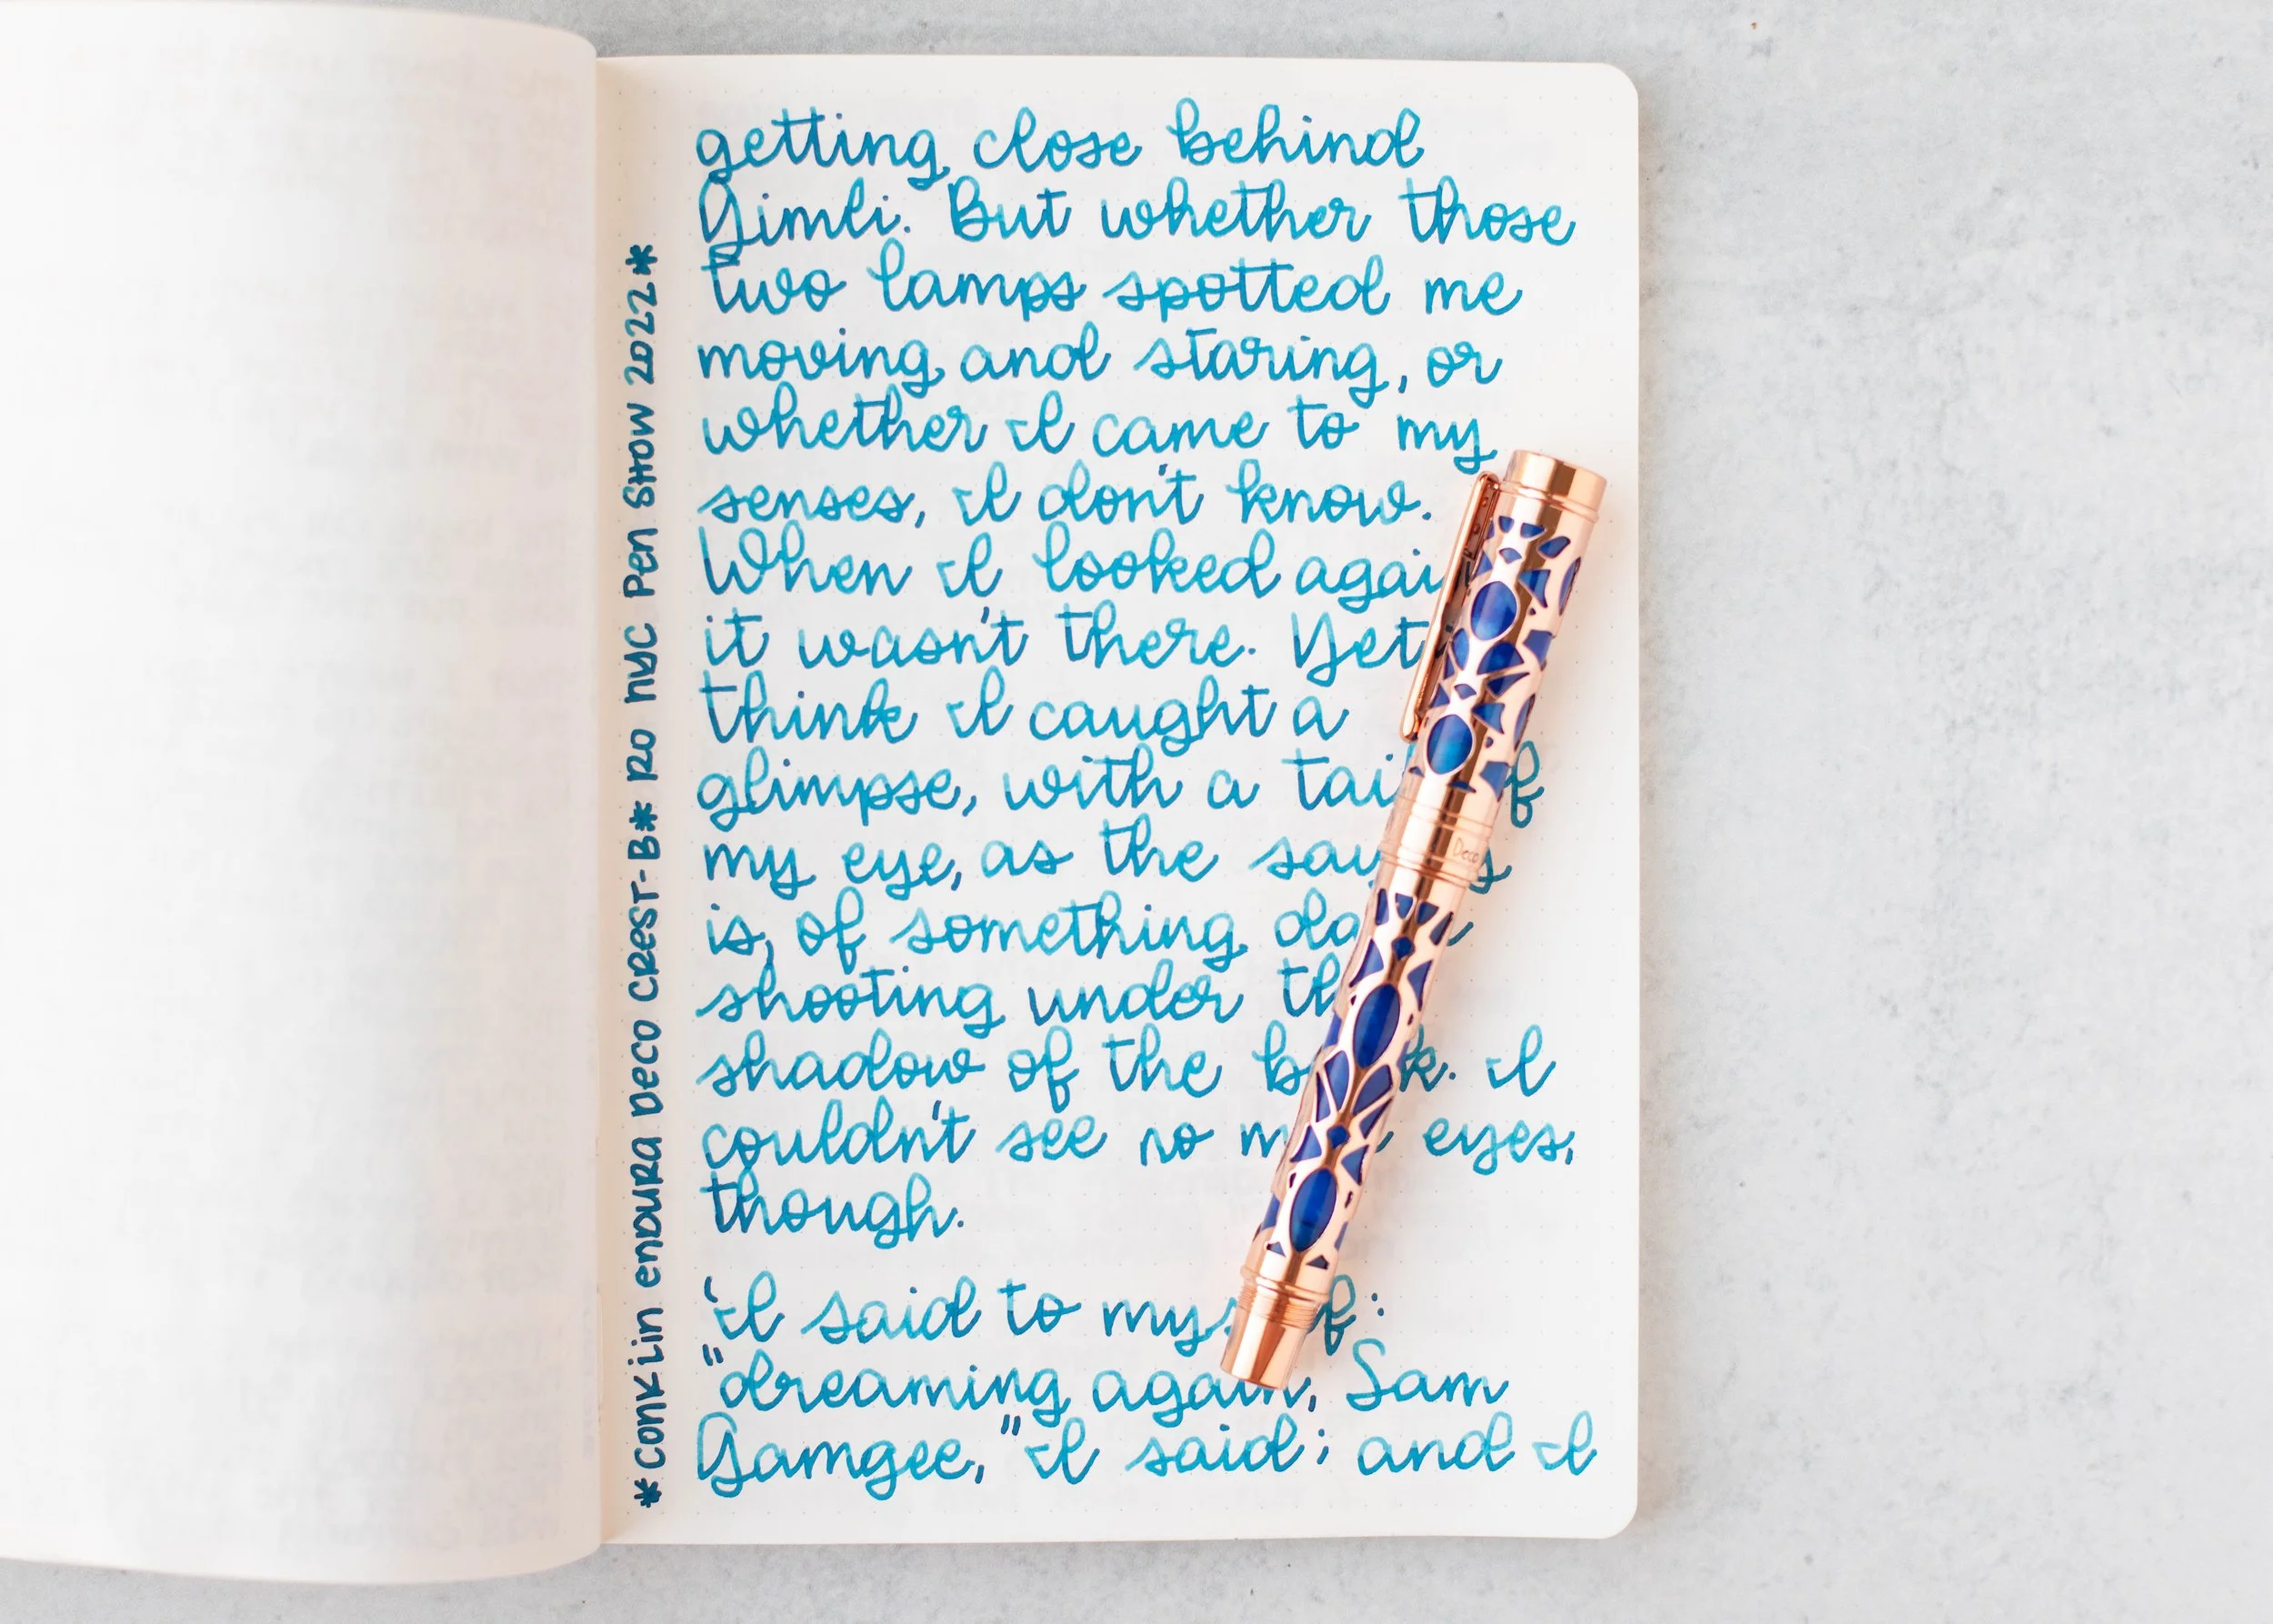 *Conklin Endura Deco Crest-B* RO NYC Pen Show 2022*
getting close behind
Gimli. But whether those
two lamps spotted me
moving and staring, or
whether I came to my
senses, I don't know.
When I looked again
it wasn't there. Yet
think I caught a
glimpse, with a tail of
my eye, as the saying
is, of something dark
shooting under the
shadow of the bank. I
couldn't see no more eyes,
though.
'I said to myself:
"dreaming again, Sam
Gamgee," I said; and I
Deco